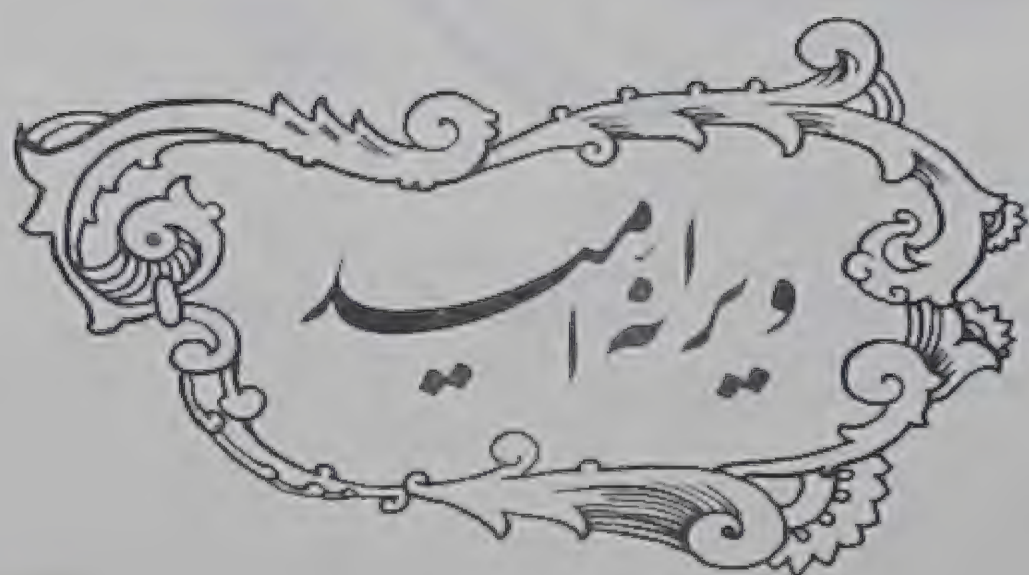 ویرانهٔ امید